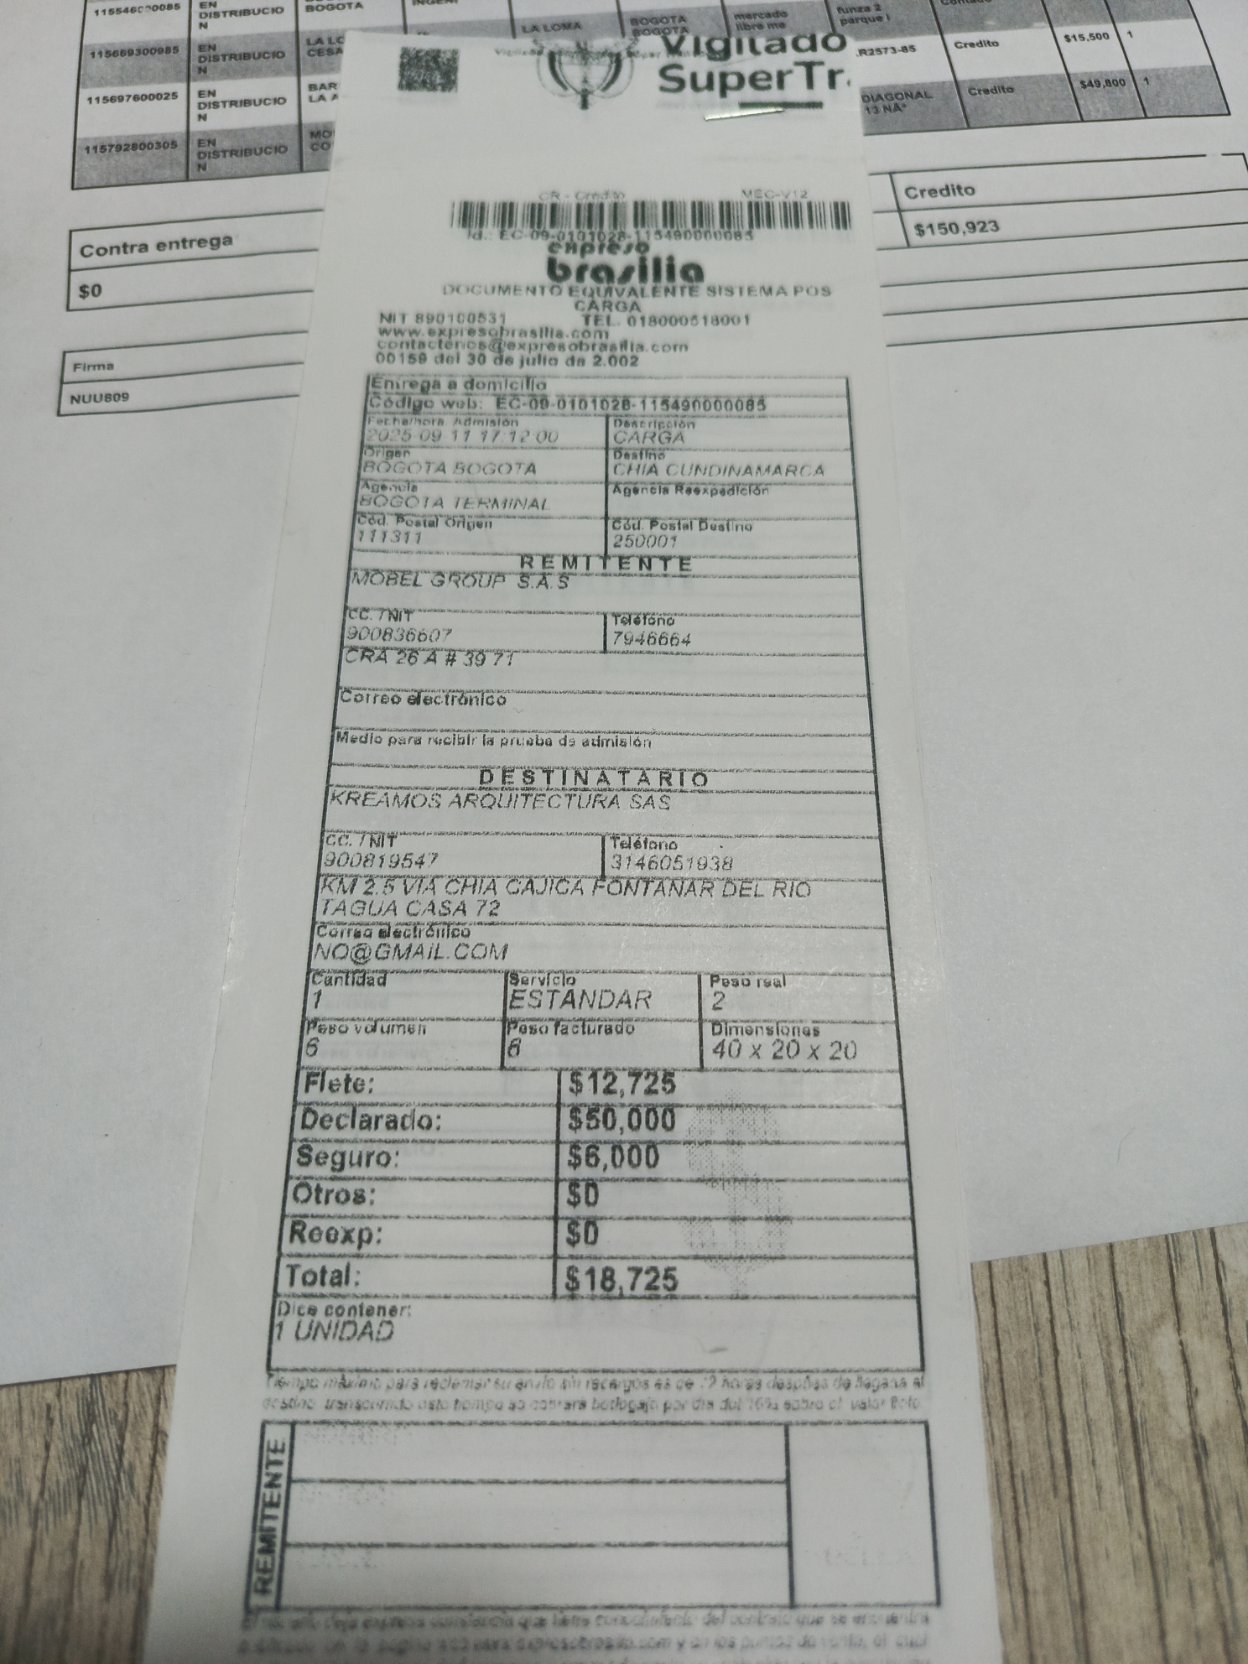 EN
DISTRIBUCIO
N
BOGOTA
LA LOMA
BOGOTA
BOGOTA
mercado
libre me
funza 2
parque l
115669300985
EN
DISTRIBUCIO
N
LA LO
CESA
.R2573-85
Credito
$15,500
1
115697600025
EN
DISTRIBUCIO
N
BAR
LA A
DIAGONAL
13 NA*
Credito
$49,800
1
115792800305
EN
DISTRIBUCIO
N
MO
CO
Contra entrega
$0
Credito
$150,923
Firma
NUU809
Vigilado
SuperTr
CR - Credito MEC-V12
Id.: EC-09-0101028-115490000085
expreso
brasilia
DOCUMENTO EQUIVALENTE SISTEMA POS
CARGA
NIT 890100531 TEL. 018000518001
www.expresobrasilia.com
contactenos@expresobrasilia.com
00159 del 30 de julio de 2.002
Entrega a domicilio
Código web: EC-09-0101028-115490000085
Fecha/hora Admisión
2025 09 11 17:12:00
Descripción
CARGA
Origen
BOGOTA BOGOTA
Destino
CHIA CUNDINAMARCA
Agencia
BOGOTA TERMINAL
Agencia Reexpedición
Cód. Postal Origen
111311
Cód. Postal Destino
250001
REMITENTE
MOBEL GROUP S.A.S
CC. / NIT
900836607
Teléfono
7946664
CRA 26 A # 39 71
Correo electrónico
Medio para recibir la prueba de admisión
DESTINATARIO
KREAMOS ARQUITECTURA SAS
CC. / NIT
900819547
Teléfono
3146051938
KM 2.5 VIA CHIA CAJICA FONTANAR DEL RIO
TAGUA CASA 72
Correo electrónico
NO@GMAIL.COM
Cantidad
1
Servicio
ESTANDAR
Peso real
2
Peso volumen
6
Peso facturado
6
Dimensiones
40 x 20 x 20
Flete: $12,725
Declarado: $50,000
Seguro: $6,000
Otros: $0
Reexp: $0
Total: $18,725
Dice contener:
1 UNIDAD
Tiempo máximo para reclamar su envío sin recargos es de 72 horas después de llegana al
destino, transcurrido este tiempo se cobrara bodegaje por día del 16% sobre el valor flete
REMITENTE